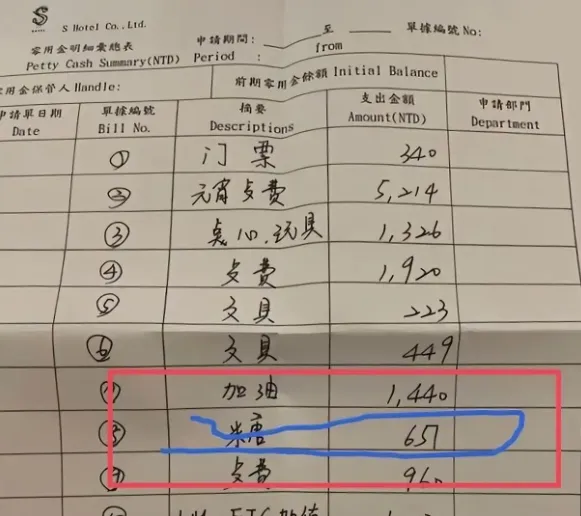 S
S Hotel Co., Ltd.
零用金明細彙總表 申請期間: 至 單據編號 No:
Petty Cash Summary(NTD) Period : from
零用金保管人 Handle: 前期零用金餘額 Initial Balance
申請單日期 單據編號 摘要 支出金額 申請部門
Date Bill No. Descriptions Amount(NTD) Department
① 门票 340
② 元宵 5,214
③ 点心.玩具 1,326
④ 1,920
⑤ 文具 223
⑥ 文具 449
⑦ 加油 1,440
⑧ 糖 651
⑨ 960
ETC